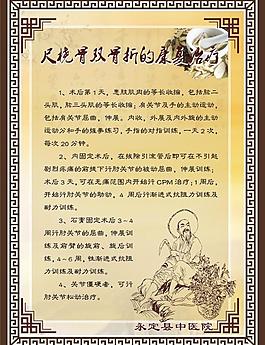 尺桡骨双骨折的康复治疗
1、术后第1天，患肢肌肉的等长收缩，包括肱二
头肌，肱三头肌的等长收缩；肩关节及手的主动运动，
包括肩关节屈曲、伸展。内收、外展及内外旋的主动
运动分和手的握拳练习，手指的对指训练，一天2次，
每次20分钟。
2、内固定术后，在拔除引流管后即可在不引起
剧烈疼痛的前提下行肘关节的被动屈曲，伸展训练；
术后3天，可在无痛范围内开始行CPM治疗；1周后，
开始行肘关节的助动，4周后行渐进式抗阻力训练及
耐力训练。
3、石膏固定术后3～4
周行肘关节的屈曲，伸展训
练及前臂的旋前、旋后训
练，4～6周，性渐进式抗阻
力训练及耐力训练。
4、关节僵硬者，可行
肘关节松动治疗。
永定县中医院